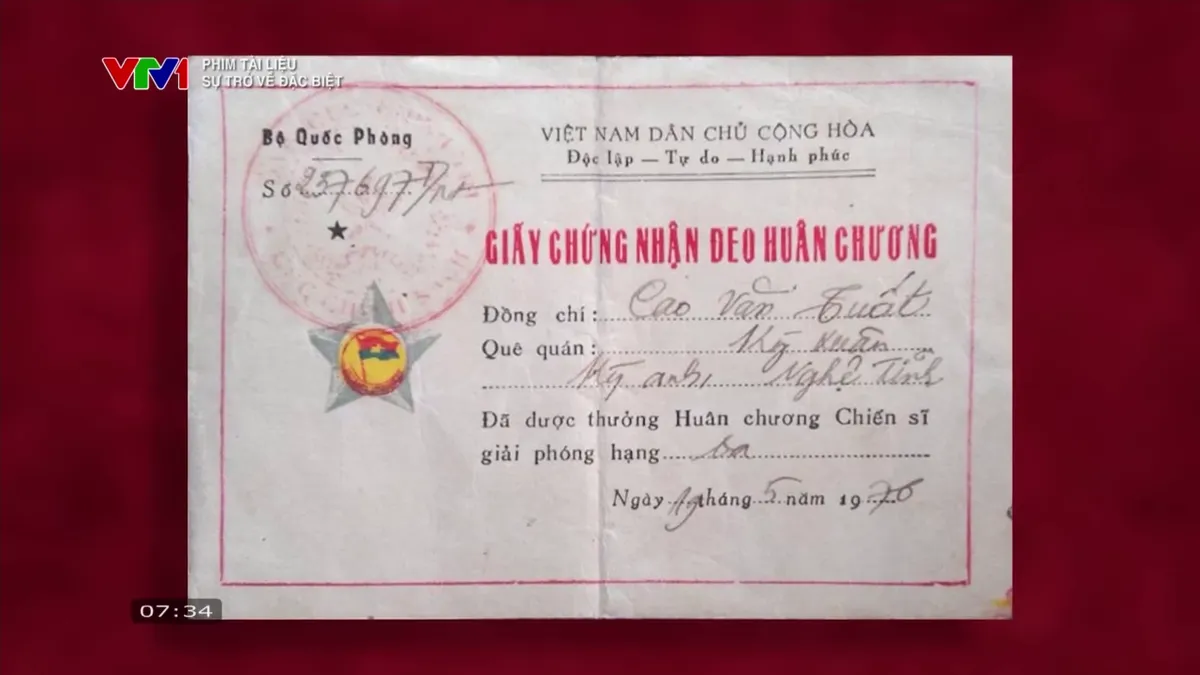 VTV1
PHIM TÀI LIỆU
SỰ TRỞ VỀ ĐẶC BIỆT
Bộ Quốc Phòng
Số 257697
VIỆT NAM DÂN CHỦ CỘNG HÒA
Độc lập — Tự do — Hạnh phúc
GIẤY CHỨNG NHẬN ĐEO HUÂN CHƯƠNG
Đồng chí: Cao Văn Tuất
Quê quán: Kỳ Xuân
Kỳ anh, Nghệ Tĩnh
Đã được thưởng Huân chương Chiến sĩ
giải phóng hạng ba
Ngày 19 tháng 5 năm 1976
07:34